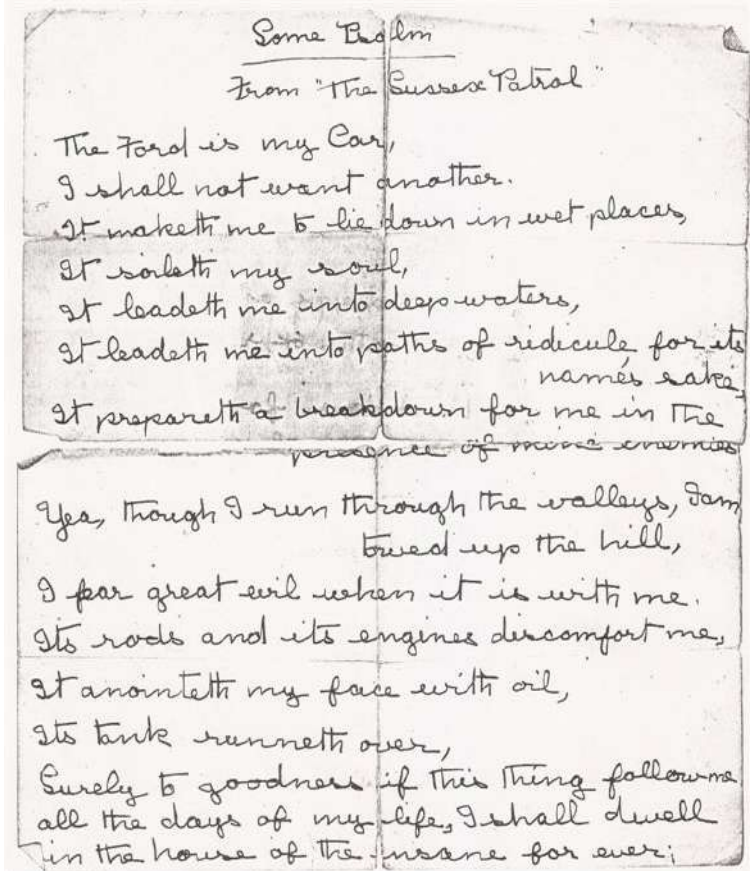 Some Psalm
From "The Sussex Patrol"
The Ford is my Car,
I shall not want another.
It maketh me to lie down in wet places,
It soileth my soul,
It leadeth me into deep waters,
It leadeth me into paths of ridicule for its
name's sake,
It prepareth a breakdown for me in the
presence of mine enemies
Yea, though I run through the valleys, I am
towed up the hill,
I fear great evil when it is with me.
Its rods and its engines discomfort me,
It anointeth my face with oil,
Its tank runneth over,
Surely to goodness if this thing follow me
all the days of my life, I shall dwell
in the house of the insane for ever;